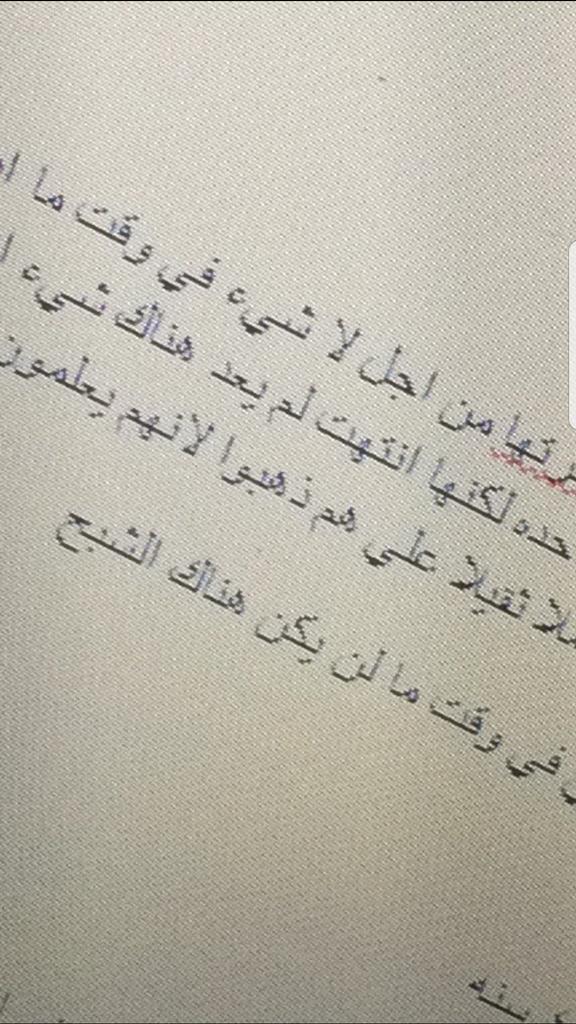 من اجل لا شيء في وقت ما
حده لكنها انتهت لم يعد هناك شيء
ثقيلا علي هم ذهبوا لانهم يعلمون
في وقت ما لن يكن هناك الشبح